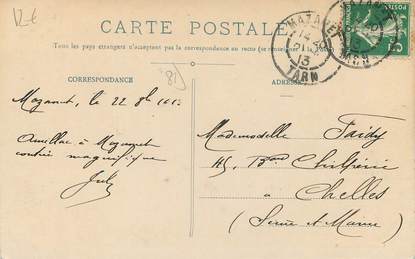 12€
CARTE POSTALE
Tous les pays étrangers n'acceptent pas la correspondance au recto (se renseigner
CORRESPONDANCE
ADRESSE
81
MAZAMET
13
TARN
Mazamet, le 22 8bre
à Mazamet
contrée magnifique
Mademoiselle Tardy
115, Bard Chilpéric
à
Chelles
(Seine et Marne)